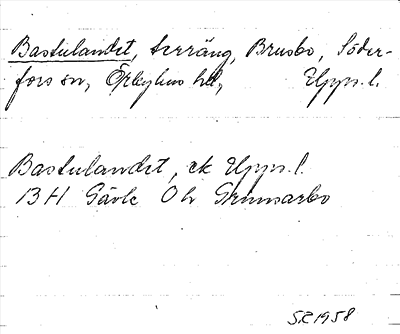 Bastulandet, terräng, Brusbo, Söder-
fors sn, Örbyhus hd, Upps. l.
Bastulandet, ek Upps. l.
BH Gävle Oh Grinsarbo
S.R. 1958